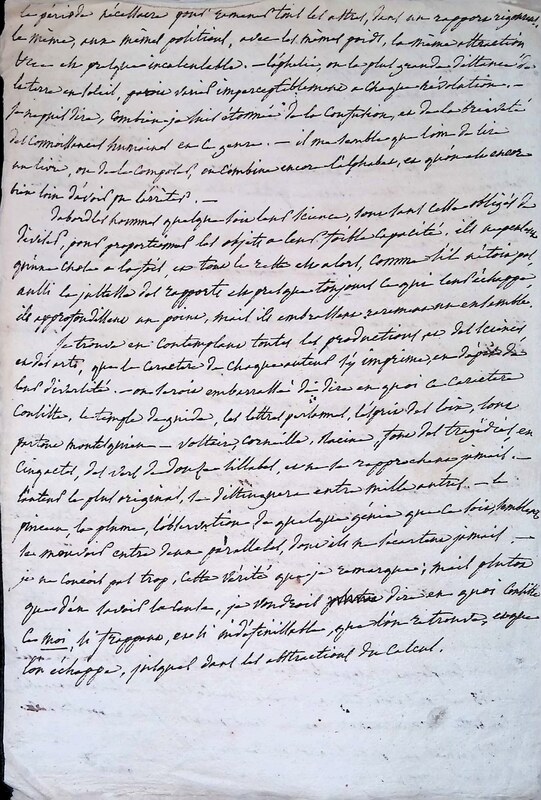 la période nécessaire pour ramener tous les astres, dans un rapport rigoureux
le même, aux mêmes positions, avec les mêmes poids, la même attraction
&c est presque incalculable. — l'aphélie, ou la plus grande distance de
la terre au soleil, varie imperceptiblement a chaque révolution. —
je ne puis dire, combien je suis étonnée de la confusion, et de la brièveté
des connoissances humaines en ce genre. — il me semble que loin de lire
un livre, ou de le composer, on combine encore l'alphabet, et qu'on est encore
bien loin d'avoir pu l'écrire. —
D'abord les hommes quelque soit leur science, sont sans cesse obligés de
diviser, pour proportionner les objets a leur foible capacité. ils ne peuvent
qu'une chose a la fois, et tout le reste est alors, comme s'il n'étoit pas
aussi la justesse des rapports est presque toujours ce qui leur échappe,
ils approfondissent un point, mais ils embrassent rarement un ensemble.
Je trouve en contemplant toutes les productions et des sciences
et des arts, que le caractère de chaque auteur s'y imprime, en dépit de
leur diversité. — on seroit embarrassé de dire en quoi ce caractère
consiste, le temple de gnide, les lettres persannes, l'esprit des loix, sont
partout montesquieu — voltaire, corneille, racine, font des tragédies, en
cinq actes, des vers de douze sillabes, et ne se rapprochent jamais. —
l'auteur le plus original, se distinguera entre mille autres. — le
pinceau la plume, l'observation de quelque génie que ce soit, semblent
se mouvoir entre deux parallèles, dont ils ne s'écartent jamais. —
je ne conçois pas trop, cette vérité que je remarque; mais plutôt
que d'en savoir la cause, je voudrois dire en quoi consiste
ce moi, si frappant, et si indéfinissable, que l'on retrouve, et que
l'on échappe, jusques dans les abstractions du calcul.